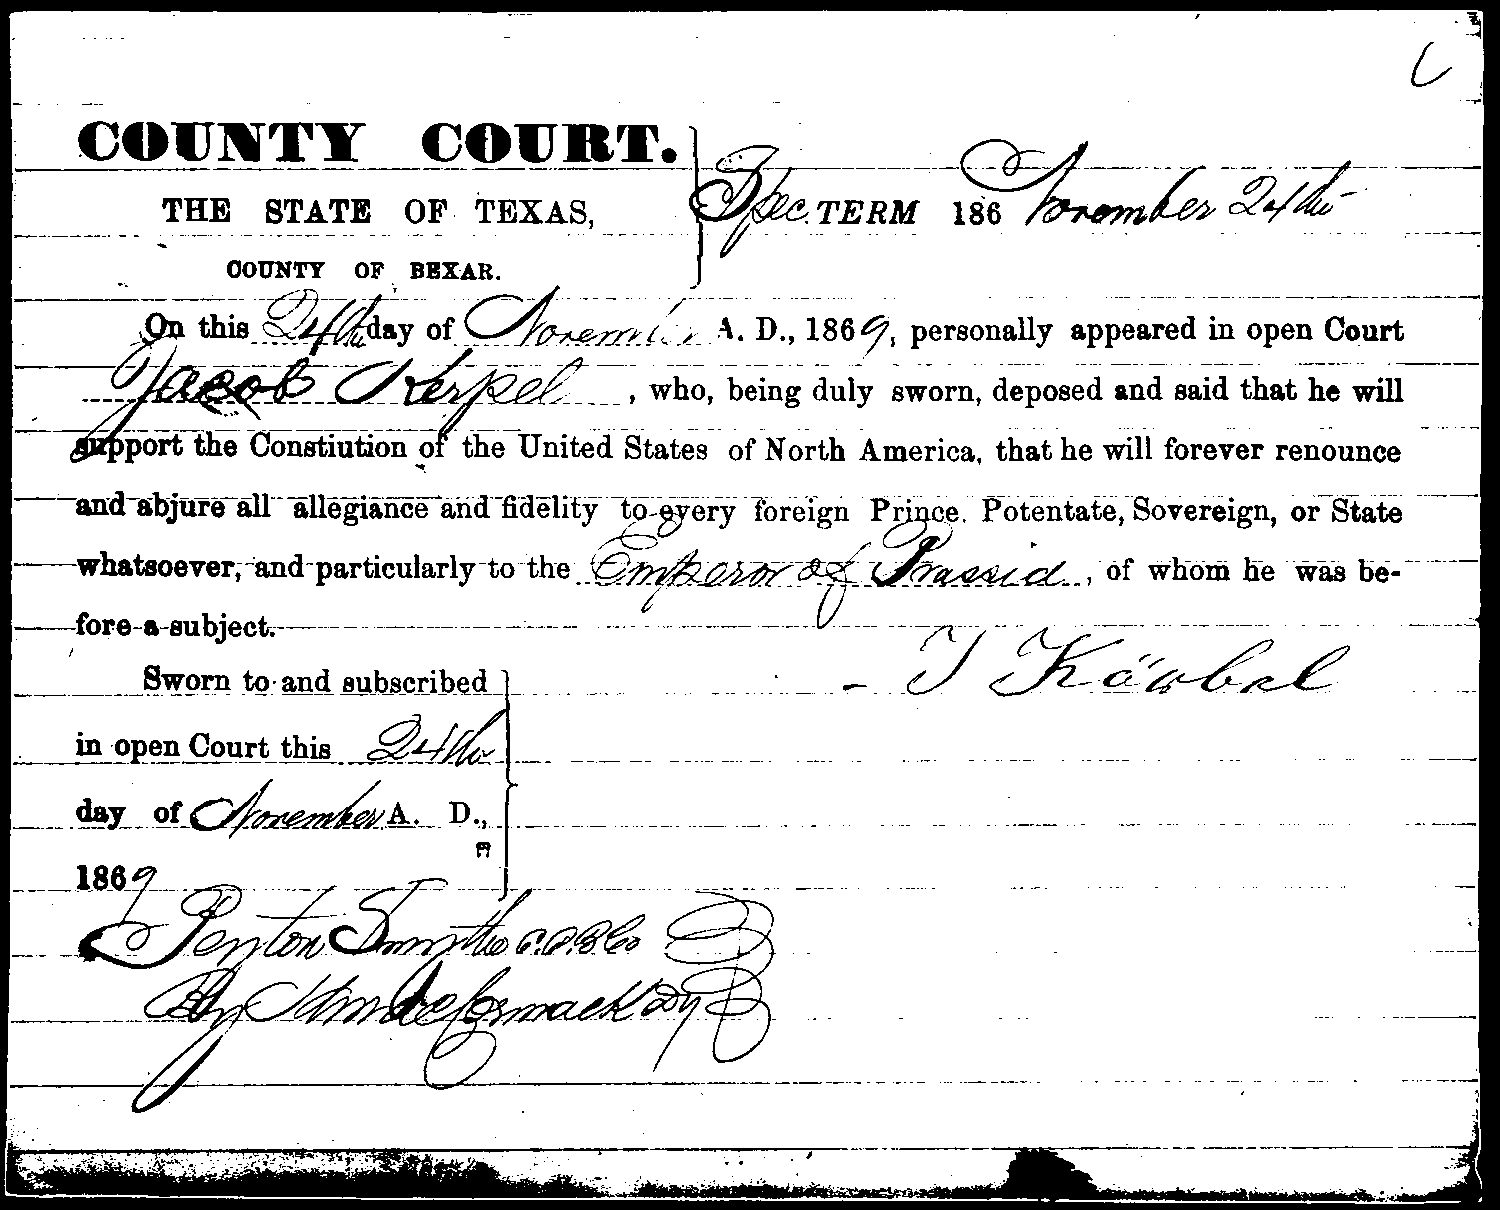 COUNTY COURT.
THE STATE OF TEXAS,
Spec. TERM 186 November 24th
COUNTY OF BEXAR.
On this 24th day of November A. D., 1869, personally appeared in open Court
Jacob Kerpel, who, being duly sworn, deposed and said that he will
support the Constiution of the United States of North America, that he will forever renounce
and abjure all allegiance and fidelity to every foreign Prince. Potentate, Sovereign, or State
whatsoever, and particularly to the Emperor of Prassid, of whom he was be-
fore a subject.
J Körbel
Sworn to and subscribed
in open Court this 24th
day of November A. D.,
1869
Penton Smythe C.C.B Co
By McCormack Dy